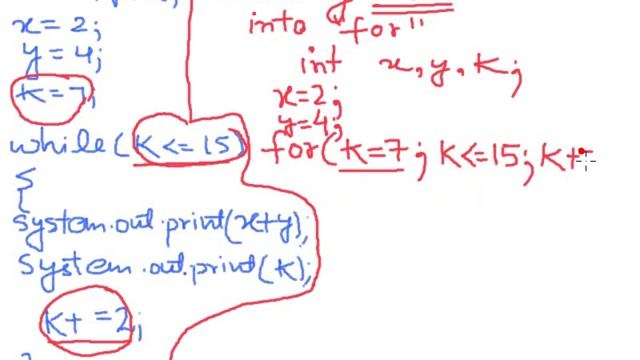 x=2;
y=4;
K=7;
while(K<=15)
{
system.out.print(x+y);
System.out.print(K);
K+=2;
into
for"
int x,y,K;
x=2;
y=4;
for(K=7; K<=15; K+=